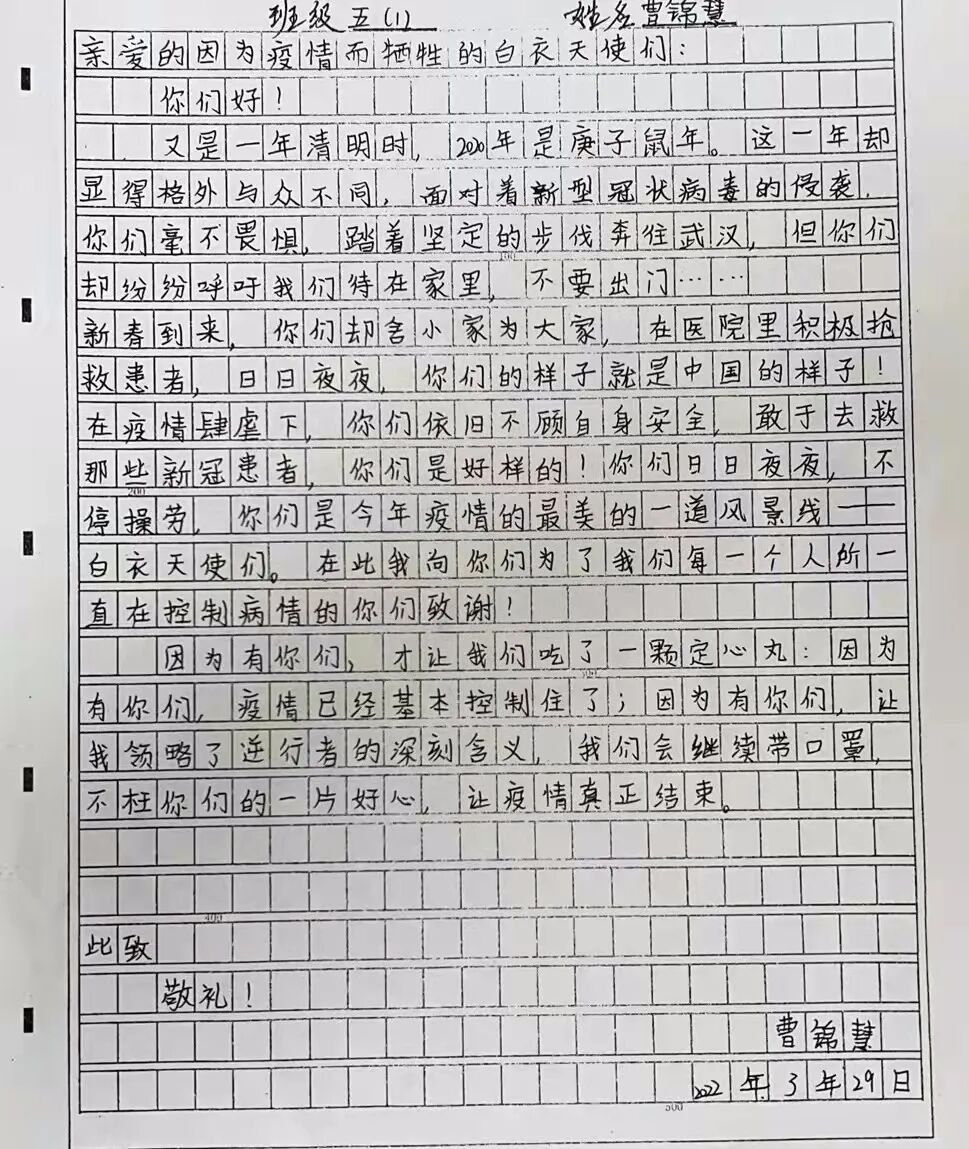 班级 五(1) 姓名 曹锦慧
亲爱的因为疫情而牺牲的白衣天使们：
你们好！
又是一年清明时，2020年是庚子鼠年。这一年却
显得格外与众不同，面对着新型冠状病毒的侵袭，
你们毫不畏惧，踏着坚定的步伐奔往武汉，但你们
100
却纷纷呼吁我们待在家里，不要出门……
新春到来，你们却舍小家为大家，在医院里积极抢
救患者，日日夜夜，你们的样子就是中国的样子！
在疫情肆虐下，你们依旧不顾自身安全，敢于去救
那些新冠患者，你们是好样的！你们日日夜夜，不
200
停操劳，你们是今年疫情的最美的一道风景线——
白衣天使们。在此我向你们为了我们每一个人所一
直在控制病情的你们致谢！
因为有你们，才让我们吃了一颗定心丸：因为
300
有你们，疫情已经基本控制住了；因为有你们，让
我领略了逆行者的深刻含义，我们会继续带口罩，
不枉你们的一片好心，让疫情真正结束。
400
此致
敬礼！
曹锦慧
2022年3年29日
500